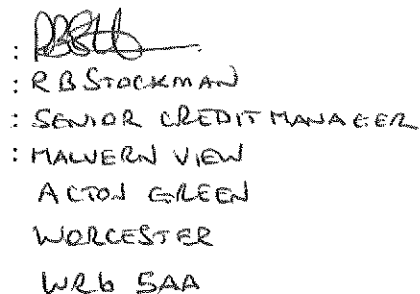 :
: R B STOCKMAN
: SENIOR CREDIT MANAGER
: MALVERN VIEW
ACTON GREEN
WORCESTER
WR6 5AA